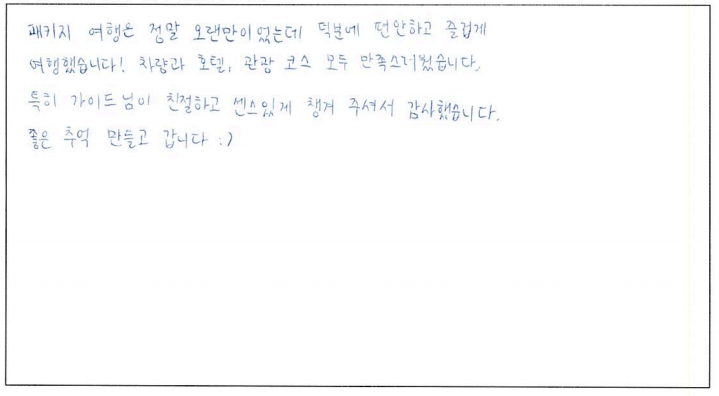 패키지 여행은 정말 오랜만이었는데 덕분에 편안하고 즐겁게
여행했습니다! 차량과 호텔, 관광 코스 모두 만족스러웠습니다.
특히 가이드님이 친절하고 센스있게 챙겨 주셔서 감사했습니다.
좋은 추억 만들고 갑니다 :)